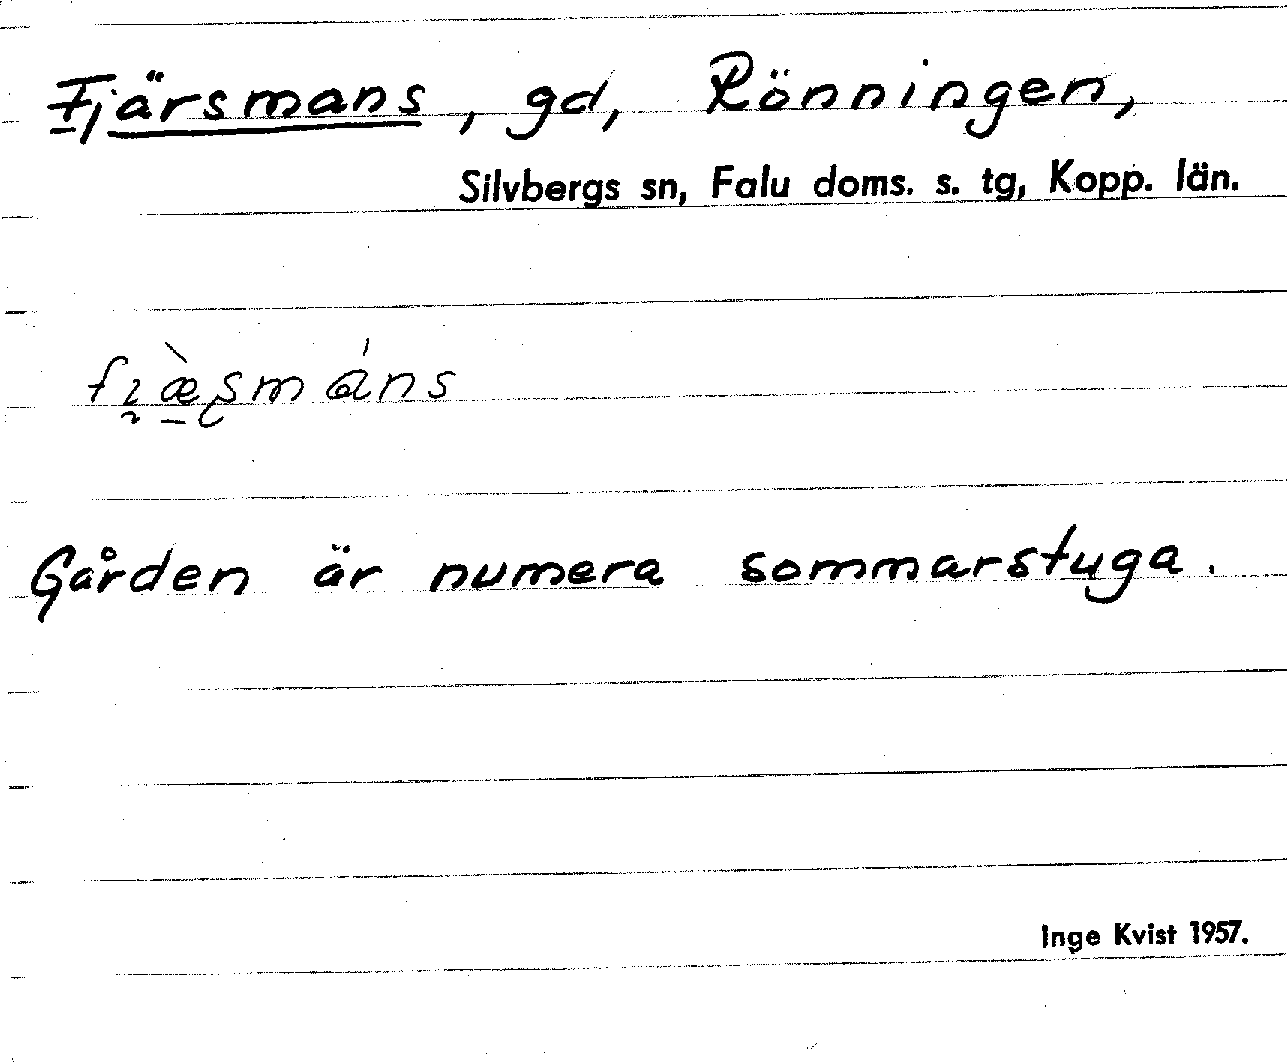 Fjärsmans, gd, Rönningen,
Silvbergs sn, Falu doms. s. tg, Kopp. län.
Gården är numera sommarstuga.
Inge Kvist 1957.